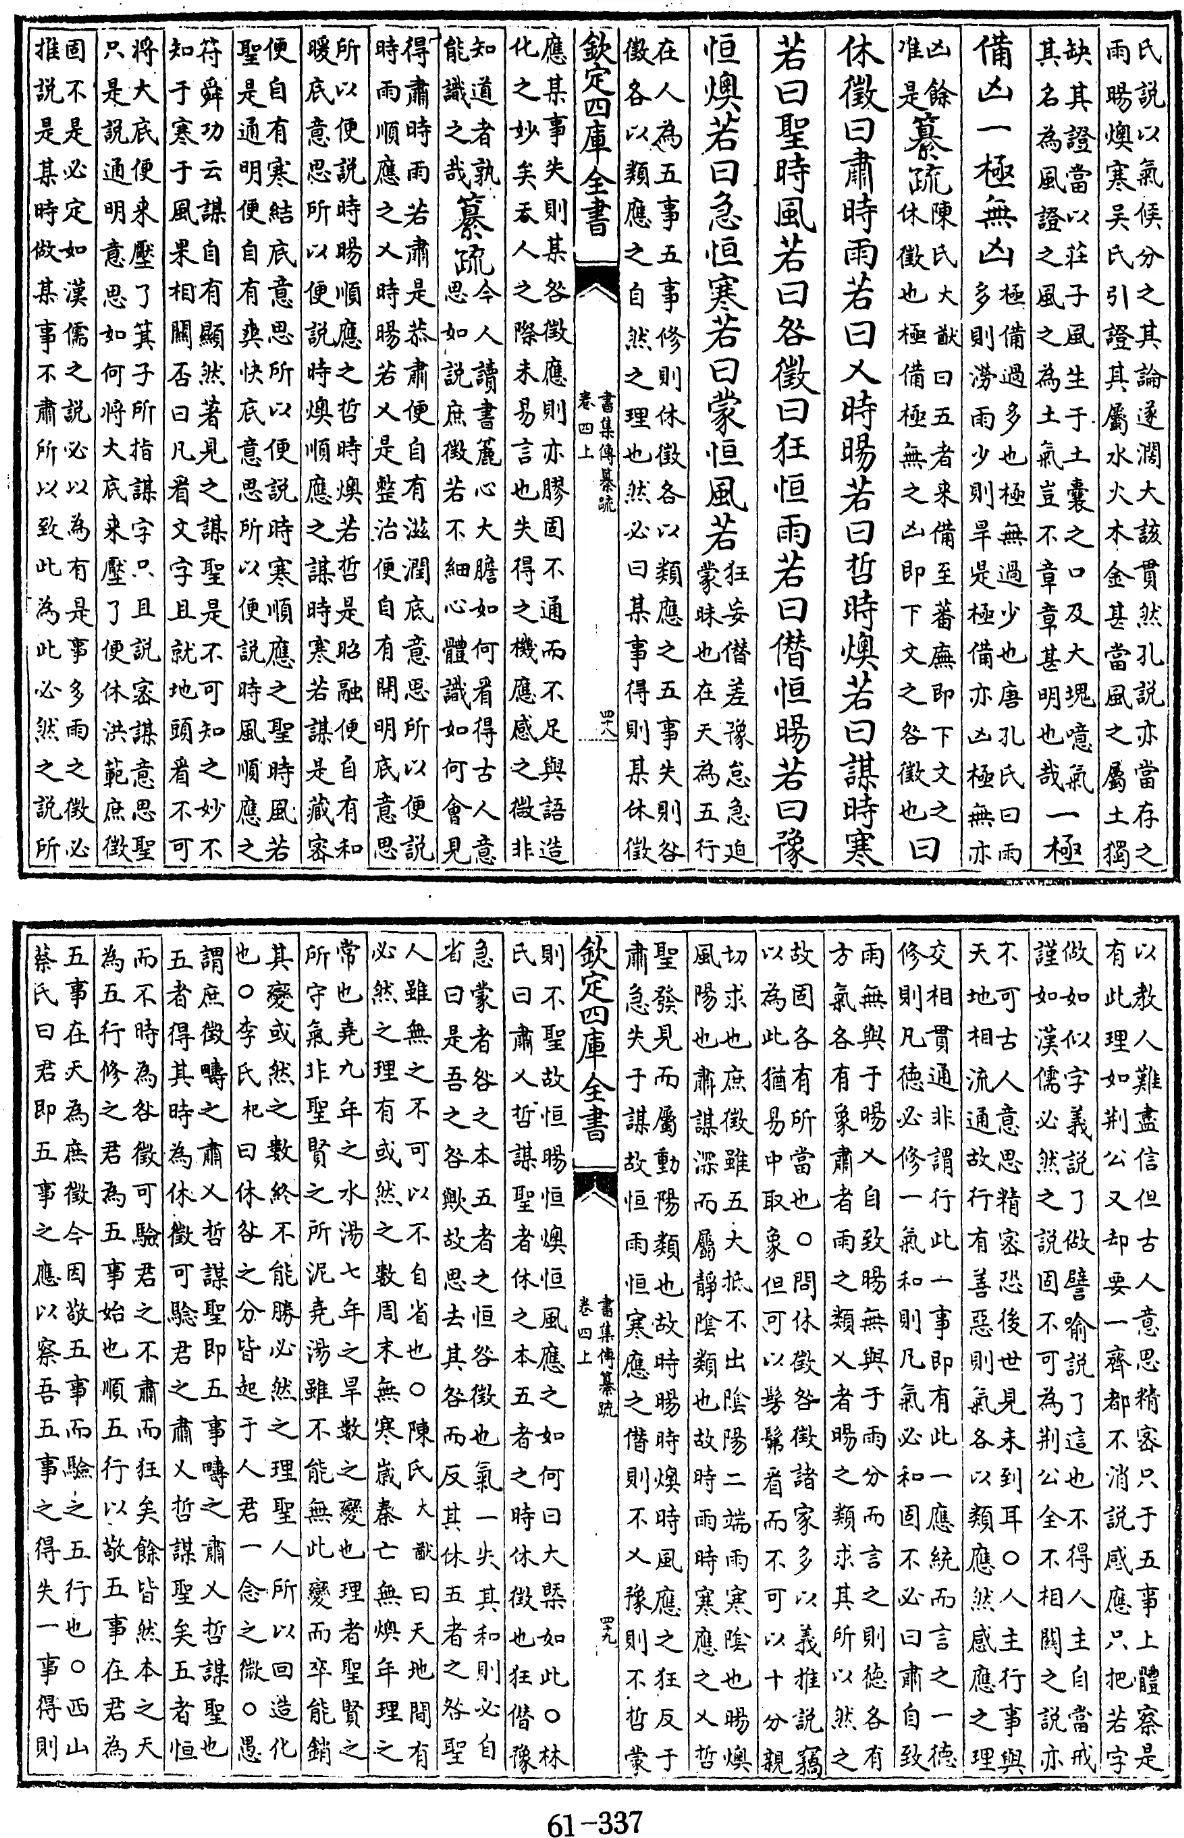 氏說以氣候分之其論遂濶大該貫然孔說亦當存之
雨暘燠寒吳氏引證其屬水火木金甚當風之屬土獨
缺其證當以莊子風生于土囊之口及大塊噫氣
其名為風證之風之為土氣豈不章章甚明也哉
一極
備凶一極無凶
極備過多也極無過少也唐孔氏曰雨
多則澇雨少則旱是極備亦凶極無亦
凶餘
准是
纂疏
陳氏大猷曰五者來備至蕃廡即下文之
休徵也極備極無之凶即下文之咎徵也
曰
休徵曰肅時雨若曰乂時暘若曰哲時燠若曰謀時寒
若曰聖時風若曰咎徵曰狂恒雨若曰僭恒暘若曰豫
恒燠若曰急恒寒若曰蒙恒風若
狂妄僭差豫怠急迫
蒙昧也在天為五行
在人為五事五事修則休徵各以類應之五事失則咎
徵各以類應之自然之理也然必曰某事得則某休徵
欽定四庫全書
書集傳纂疏
卷四上
四十八
應某事失則某咎徵應則亦膠固不通而不足與語造
化之妙矣天人之際未易言也失得之機應感之微非
知道者孰
能識之哉
纂疏
今人讀書麄心大膽如何看得古人意
思如說庶徵若不細心體識如何會見
得肅時雨若肅是恭肅便自有滋潤底意思所以便說
時雨順應之乂時暘若乂是整治便自有開明底意思
所以便說時暘順應之哲時燠若哲是昭融便自有和
暖底意思所以便說時燠順應之謀時寒若謀是藏密
便自有寒結底意思所以便說時寒順應之聖時風若
聖是通明便自有爽快底意思所以便說時風順應之
符舜功云謀自有顯然著見之謀聖是不可知之妙不
知于寒于風果相關否曰凡看文字且就地頭看不可
將大底便來壓了箕子所指謀字只且說密謀意思聖
只是說通明意思如何將大底來壓了便休洪範庶徵
固不是必定如漢儒之說必以為有是事多雨之徵必
推說是某時做某事不肅所以致此為此必然之說所
以教人難盡信但古人意思精密只于五事上體察是
有此理如荆公又却要一齊都不消說感應只把若字
做如似字義說了做譬喻說了這也不得人主自當戒
謹如漢儒必然之說固不可為荆公全不相關之說亦
不可古人意思精密恐後世見未到耳○人主行事與
天地相流通故行有善惡則氣各以類應然感應之理
交相貫通非謂行此一事即有此一應統而言之一德
修則凡德必修一氣和則凡氣必和固不必曰肅自致
雨無與于暘乂自致暘無與于雨分而言之則德各有
方氣各有象肅者雨之類乂者暘之類求其所以然之
故固各有所當也○問休徵咎徵諸家多以義推說竊
以為此猶易中取象但可以髣髴看而不可以十分親
切求也庶徵雖五大抵不出陰陽二端雨寒陰也暘燠
風陽也肅謀深而屬靜陰類也故時雨時寒應之乂哲
聖發見而屬動陽類也故時暘時燠時風應之狂反于
肅急失于謀故恒雨恒寒應之僭則不乂豫則不哲蒙
欽定四庫全書
書集傳纂疏
卷四上
四十九
則不聖故恒暘恒燠恒風應之如何曰大槩如此○林
氏曰肅乂哲謀聖者休之本五者之時休徵也狂僭豫
急蒙者咎之本五者之恒咎徵也氣一失其和則必自
省曰是吾之咎歟故思去其咎而反其休五者之咎聖
人雖無之不可以不自省也○陳氏大猷曰天地間有
必然之理有或然之數周末無寒歲秦亡無燠年理之
常也堯九年之水湯七年之旱數之變也理者聖賢之
所守氣非聖賢之所泥堯湯雖不能無此變而卒能銷
其變或然之數終不能勝必然之理聖人所以回造化
也○李氏杞曰休咎之分皆起于人君一念之微○愚
謂庶徵疇之肅乂哲謀聖即五事疇之肅乂哲謀聖也
五者得其時為休徵可驗君之肅乂哲謀聖矣五者恒
而不時為咎徵可驗君之不肅而狂矣餘皆然本之天
為五行修之君為五事始也順五行以敬五事在君為
五事在天為庶徵今因敬五事而驗之五行也○西山
蔡氏曰君即五事之應以察吾五事之得失一事得則
61-337